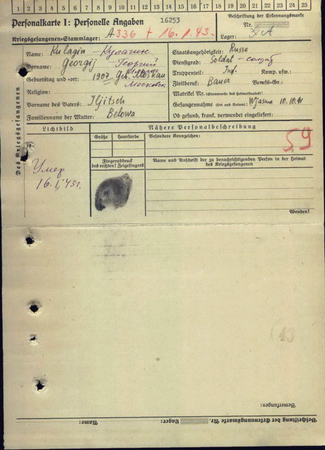 1 2 3 4 5 6 7 8 9 10 11 12 13 14 15 16 17 18 19 20 21 22 23 24 25
Personalkarte I: Personelle Angaben
16253
Beschriftung der Erkennungsmarke
Nr.
Kriegsgefangenen-Stammlager: A336 + 16.1.43.
Lager:
Des Kriegsgefangenen
Name: Kulagin - Кулагин
Vorname: Georgij Георгий
Geburtstag und -ort: 1907 Geb. Moskau
Москва
Religion:
Vorname des Vaters: Iljitsch
Familienname der Mutter: Belowa
Staatsangehörigkeit: Russe
Dienstgrad: Soldat - солдат
Truppenteil: Inf. Komp. usw.:
Zivilberuf: Bauer Berufs-Gr.:
Matrikel Nr.
Gefangennahme (Ort und Datum): Wjasma 10.10.41
Ob gesund, krank, verwundet eingeliefert:
Lichtbild
Nähere Personalbeschreibung
Größe Haarfarbe Besondere Kennzeichen:
59
Умер
16.I.43г.
Fingerabdruck
des rechten! Zeigefingers
Name und Anschrift der zu benachrichtigenden Person in der Heimat
des Kriegsgefangenen
Wenden!
Bemerkungen:
Beschriftung der Erkennungsmarke Nr. Lager: